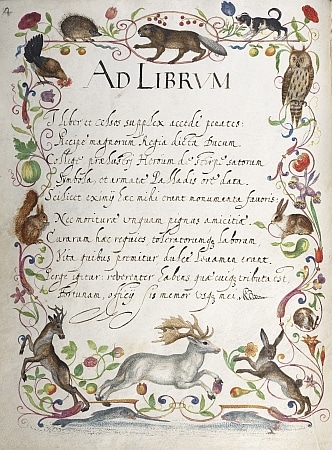 AD LIBRVM
I liber et celsos supplex accede penates:
Excipe magnorum Regia dicta Ducum.
Collige præclaris Heroum de stirpe satorum
Symbola, et armatæ Palladis ore data.
Scilicet eximij hæc mihi erunt monumenta fauoris:
Nec moritura unquam pignus amicitiæ.
Curarum hæc requies toleratorumq; laborum
Vita quibus premitur dulce leuamen erunt.
Perge igitur: reuerenter habens, quæ cuiq; tributa est,
fortunam, officij sis memor usq; mei.